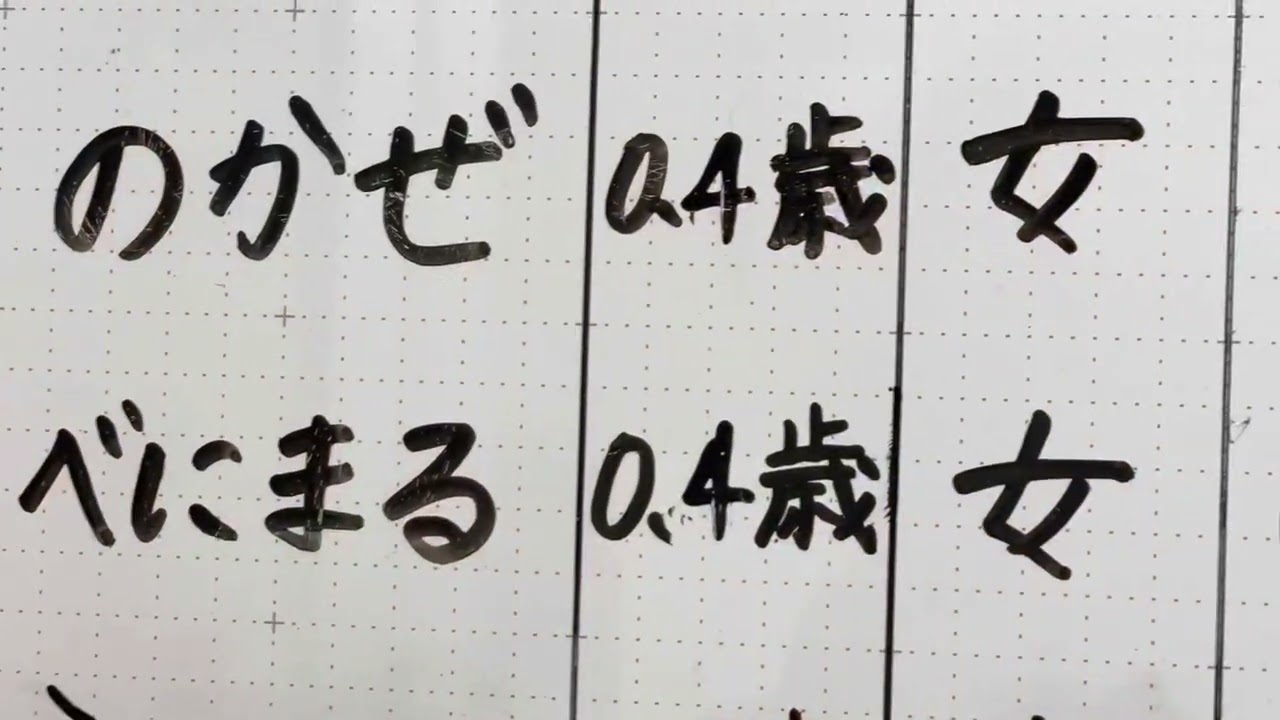 のかぜ 0.4歳 女
べにまる 0.4歳 女